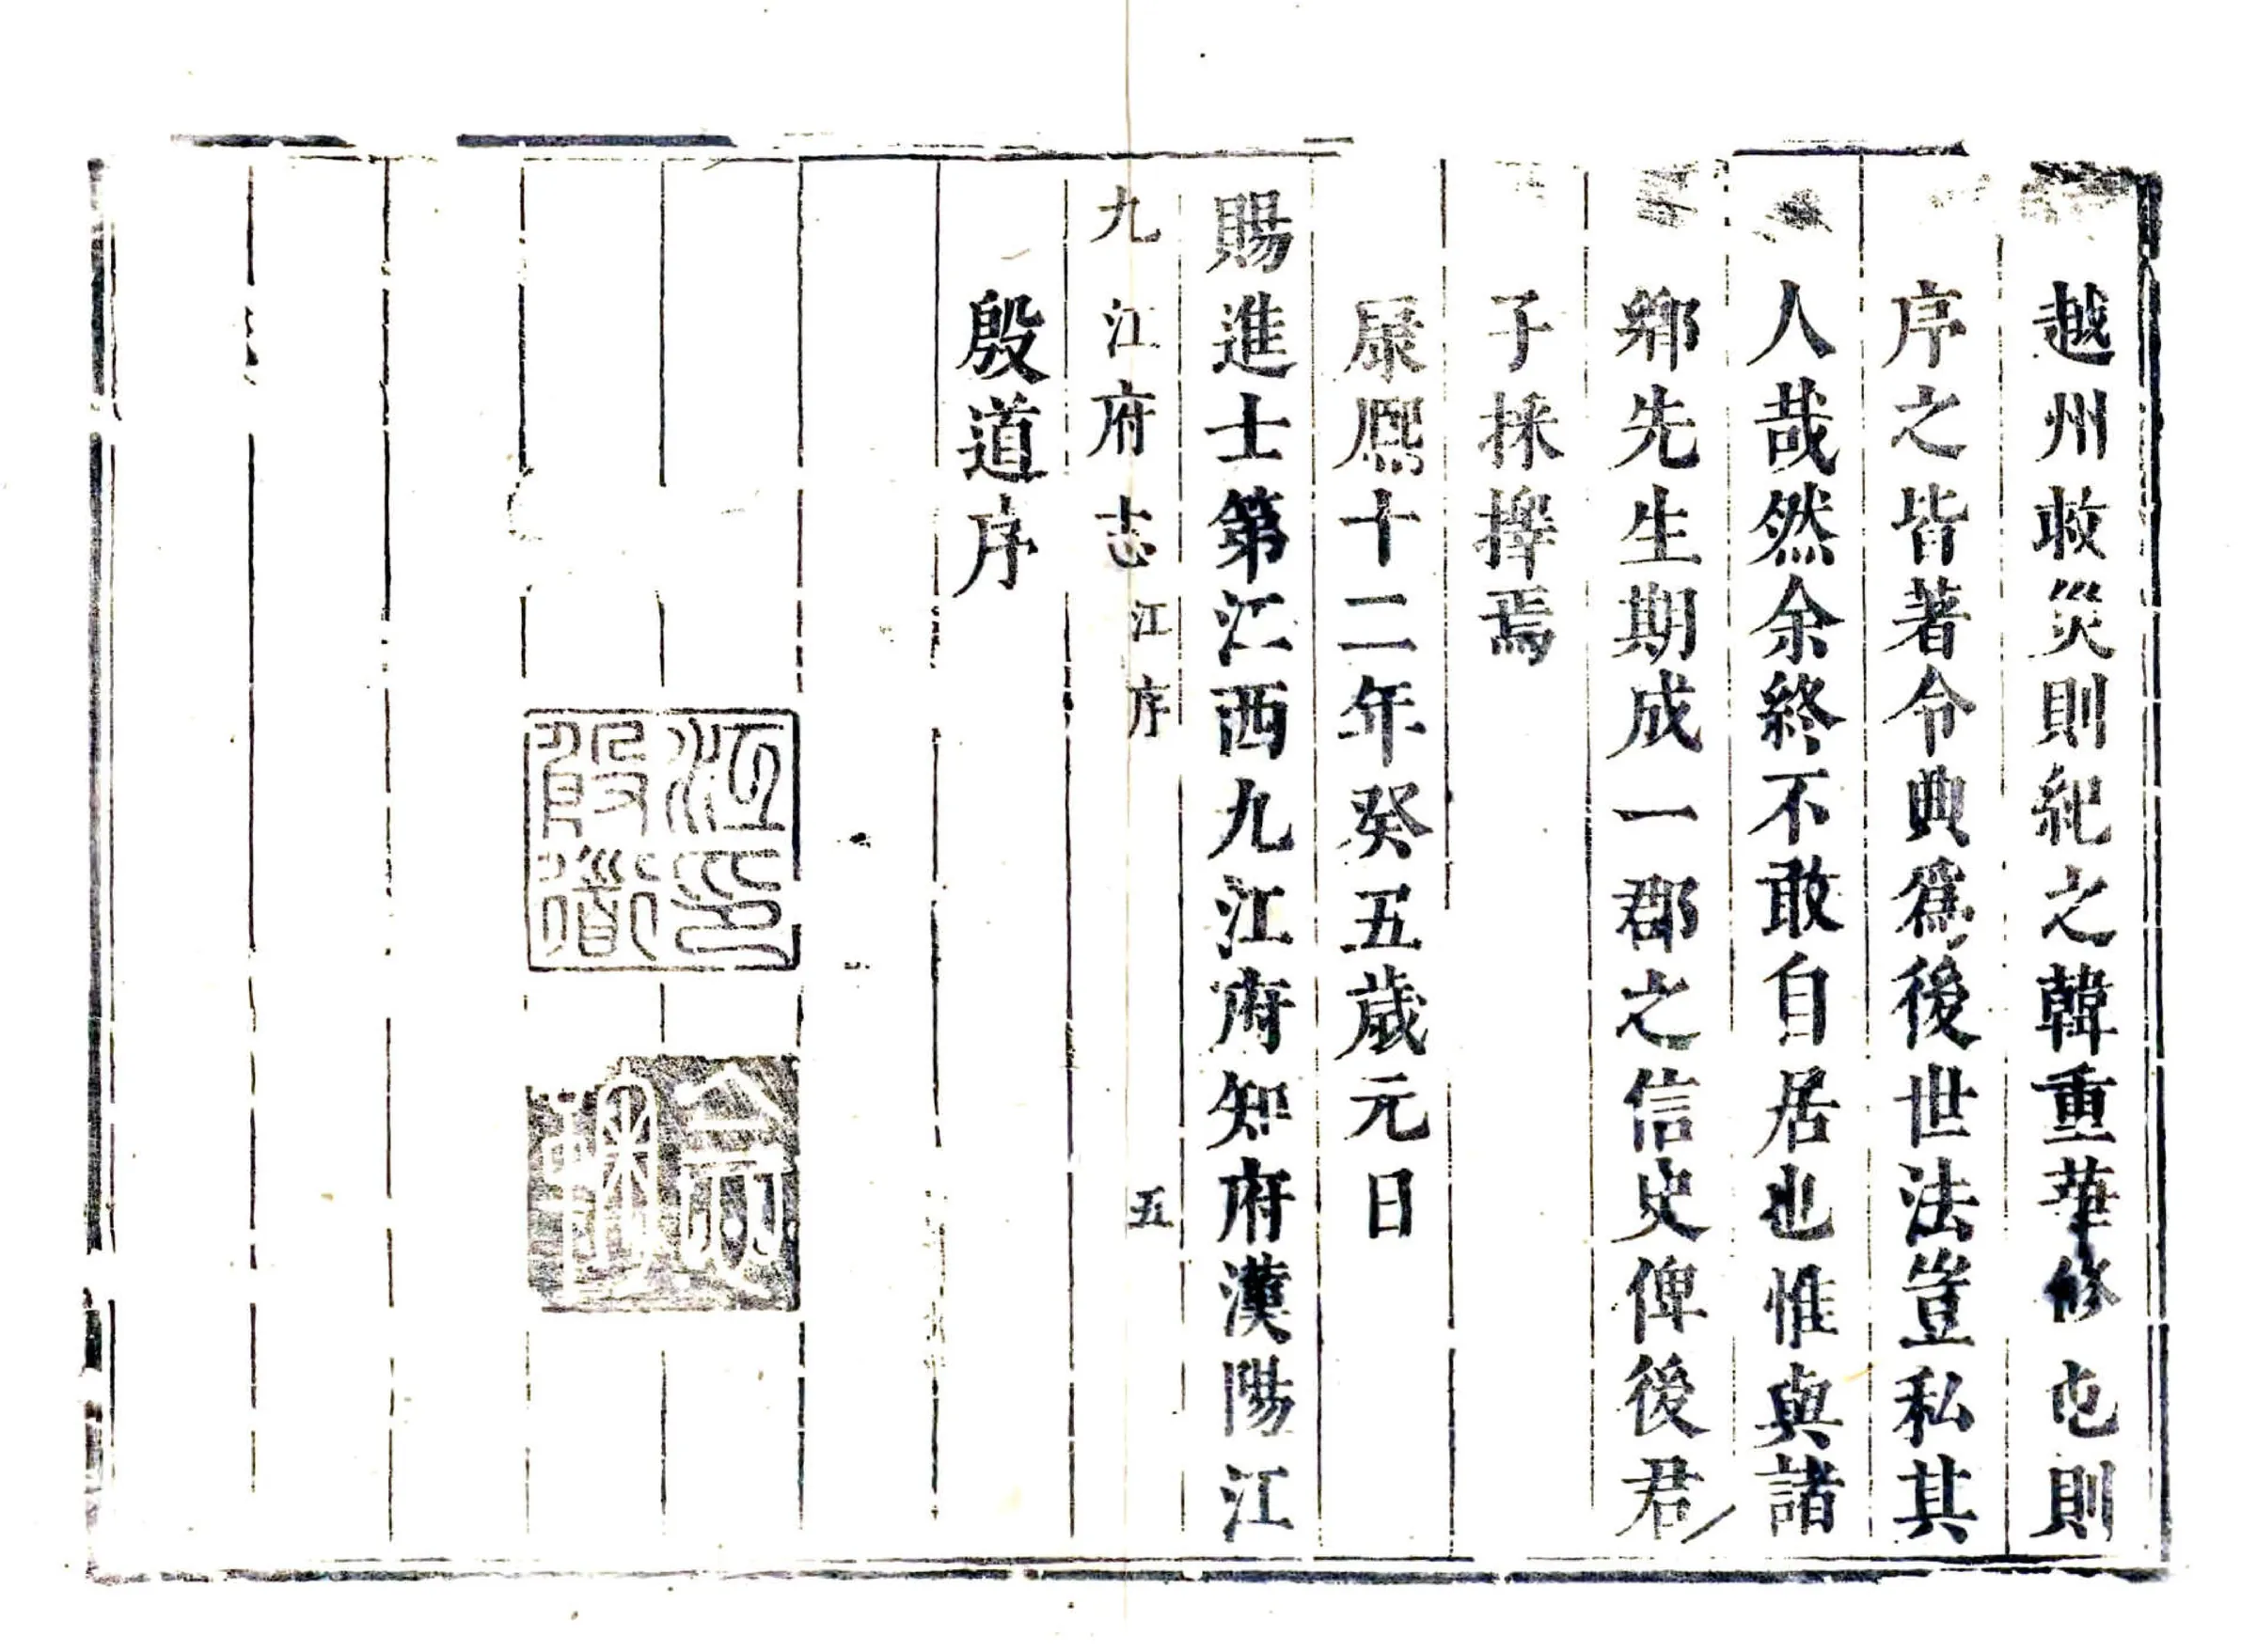 越州救災則紀之韓重華修屯則
序之皆著令典爲後世法豈私其
人哉然余終不敢自居也惟與諸
鄉先生期成一郡之信史俾後君
子採擇焉
康熙十二年癸丑歲元日
賜進士第江西九江府知府漢陽江
九江府志 江序 五
殷道序
江殷道印